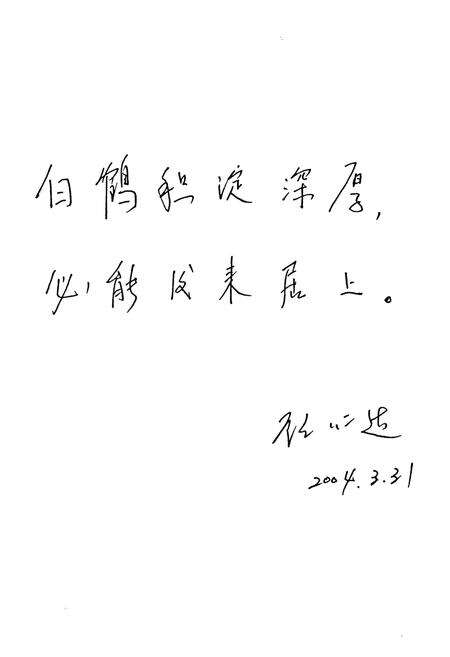 白鹤积淀深厚,
必能后来居上。
2004.3.31